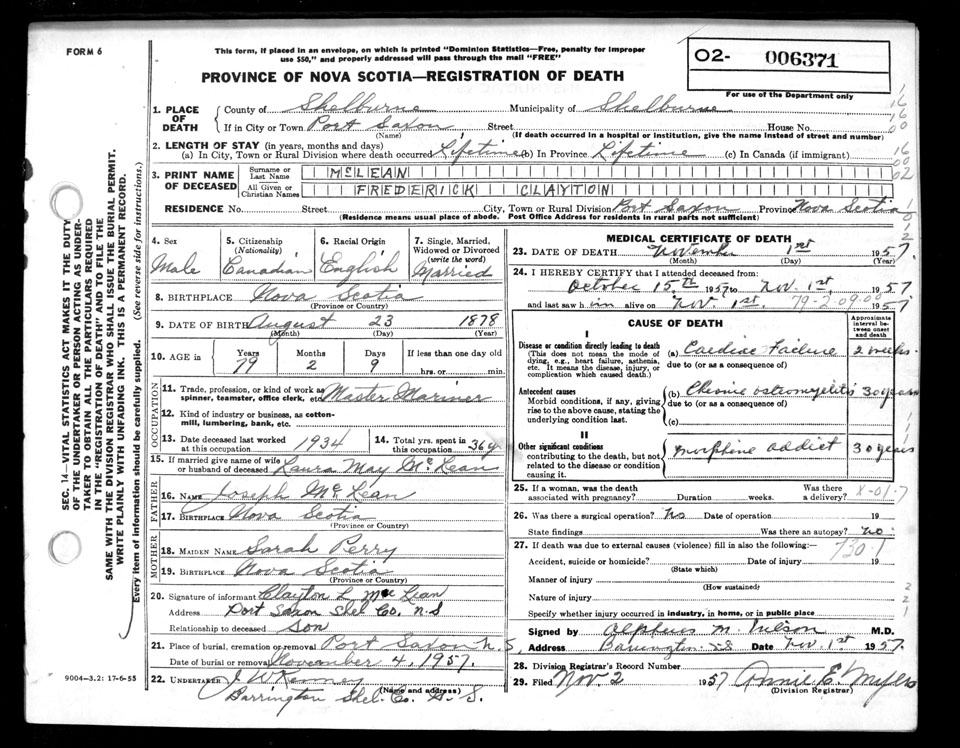 FORM 6
This form, if placed in an envelope, on which is printed "Dominion Statistics—Free, penalty for improper
use $50," and properly addressed will pass through the mail "FREE"
02- 006371
For use of the Department only
PROVINCE OF NOVA SCOTIA—REGISTRATION OF DEATH
1. PLACE OF DEATH
County of Shelburne Municipality of Shelburne
If in City or Town Port Saxon Street House No.
(Name) (If death occurred in a hospital or institution, give the name instead of street and number)
2. LENGTH OF STAY (in years, months and days)
(a) In City, Town or Rural Division where death occurred Lifetime (b) In Province Lifetime (c) In Canada (if immigrant)
3. PRINT NAME OF DECEASED
Surname or Last Name McLEAN
All Given or Christian Names FREDERICK CLAYTON
RESIDENCE No. Street City, Town or Rural Division Port Saxon Province Nova Scotia
(Residence means usual place of abode. Post Office Address for residents in rural parts not sufficient)
4. Sex Male
5. Citizenship (Nationality) Canadian
6. Racial Origin English
7. Single, Married, Widowed or Divorced (write the word) Married
8. BIRTHPLACE Nova Scotia
(Province or Country)
9. DATE OF BIRTH August 23 1878
(Month) (Day) (Year)
10. AGE in Years Months Days If less than one day old
79 2 9 hrs. or min.
OCCUPATION
11. Trade, profession, or kind of work as spinner, teamster, office clerk, etc. Master Mariner
12. Kind of industry or business, as cotton-mill, lumbering, bank, etc.
13. Date deceased last worked at this occupation 1934
14. Total yrs. spent in this occupation 36 y
15. If married give name of wife or husband of deceased Laura May McLean
FATHER
16. NAME Joseph McLean
17. BIRTHPLACE Nova Scotia
(Province or Country)
MOTHER
18. MAIDEN NAME Sarah Perry
19. BIRTHPLACE Nova Scotia
(Province or Country)
20. Signature of informant Clayton L McLean
Address Port Saxon Shel Co. N.S
Relationship to deceased Son
21. Place of burial, cremation or removal Port Saxon N.S,
Date of burial or removal November 4, 1957.
22. UNDERTAKER J W Kenney
(Name and address)
Barrington Shel. Co. N.S.
9004—3.2: 17-6-55
MEDICAL CERTIFICATE OF DEATH
23. DATE OF DEATH November 1st 1957.
(Month) (Day) (Year)
24. I HEREBY CERTIFY that I attended deceased from:
October 15th 1957 to Nov. 1st. 1957
and last saw him alive on Nov. 1st. 1957
79-2-09.00
CAUSE OF DEATH
Approximate interval between onset and death
I
Disease or condition directly leading to death
(This does not mean the mode of dying, e.g., heart failure, asthenia, etc. It means the disease, injury, or complication which caused death.)
(a) Cardiac Failure 2 weeks.
due to (or as a consequence of)
Antecedent causes
Morbid conditions, if any, giving rise to the above cause, stating the underlying condition last.
(b) Chronic osteomyelitis 30 years
due to (or as a consequence of)
(c)
II
Other significant conditions
contributing to the death, but not related to the disease or condition causing it.
morphine addict 30 years
25. If a woman, was the death associated with pregnancy? Duration weeks. Was there a delivery?
26. Was there a surgical operation? No Date of operation 19
State findings Was there an autopsy? no.
27. If death was due to external causes (violence) fill in also the following:—
730.1
Accident, suicide or homicide? Date of injury 19
(State which)
Manner of injury
(How sustained)
Nature of injury
Specify whether injury occurred in industry, in home, or in public place
Signed by Alphus M. Wilson M.D.
Address Barrington N.S. Date Nov. 1st 1957.
28. Division Registrar's Record Number
29. Filed Nov. 2 1957 Annie E. Myers
(Division Registrar)
SEC. 14—VITAL STATISTICS ACT MAKES IT THE DUTY
OF THE UNDERTAKER OR PERSON ACTING AS UNDER-
TAKER TO OBTAIN ALL THE PARTICULARS REQUIRED
IN THE "REGISTRATION OF DEATH" AND TO FILE THE
SAME WITH THE DIVISION REGISTRAR WHO SHALL ISSUE THE BURIAL PERMIT.
WRITE PLAINLY WITH UNFADING INK. THIS IS A PERMANENT RECORD.
Every item of information should be carefully supplied. (See reverse side for instructions.)